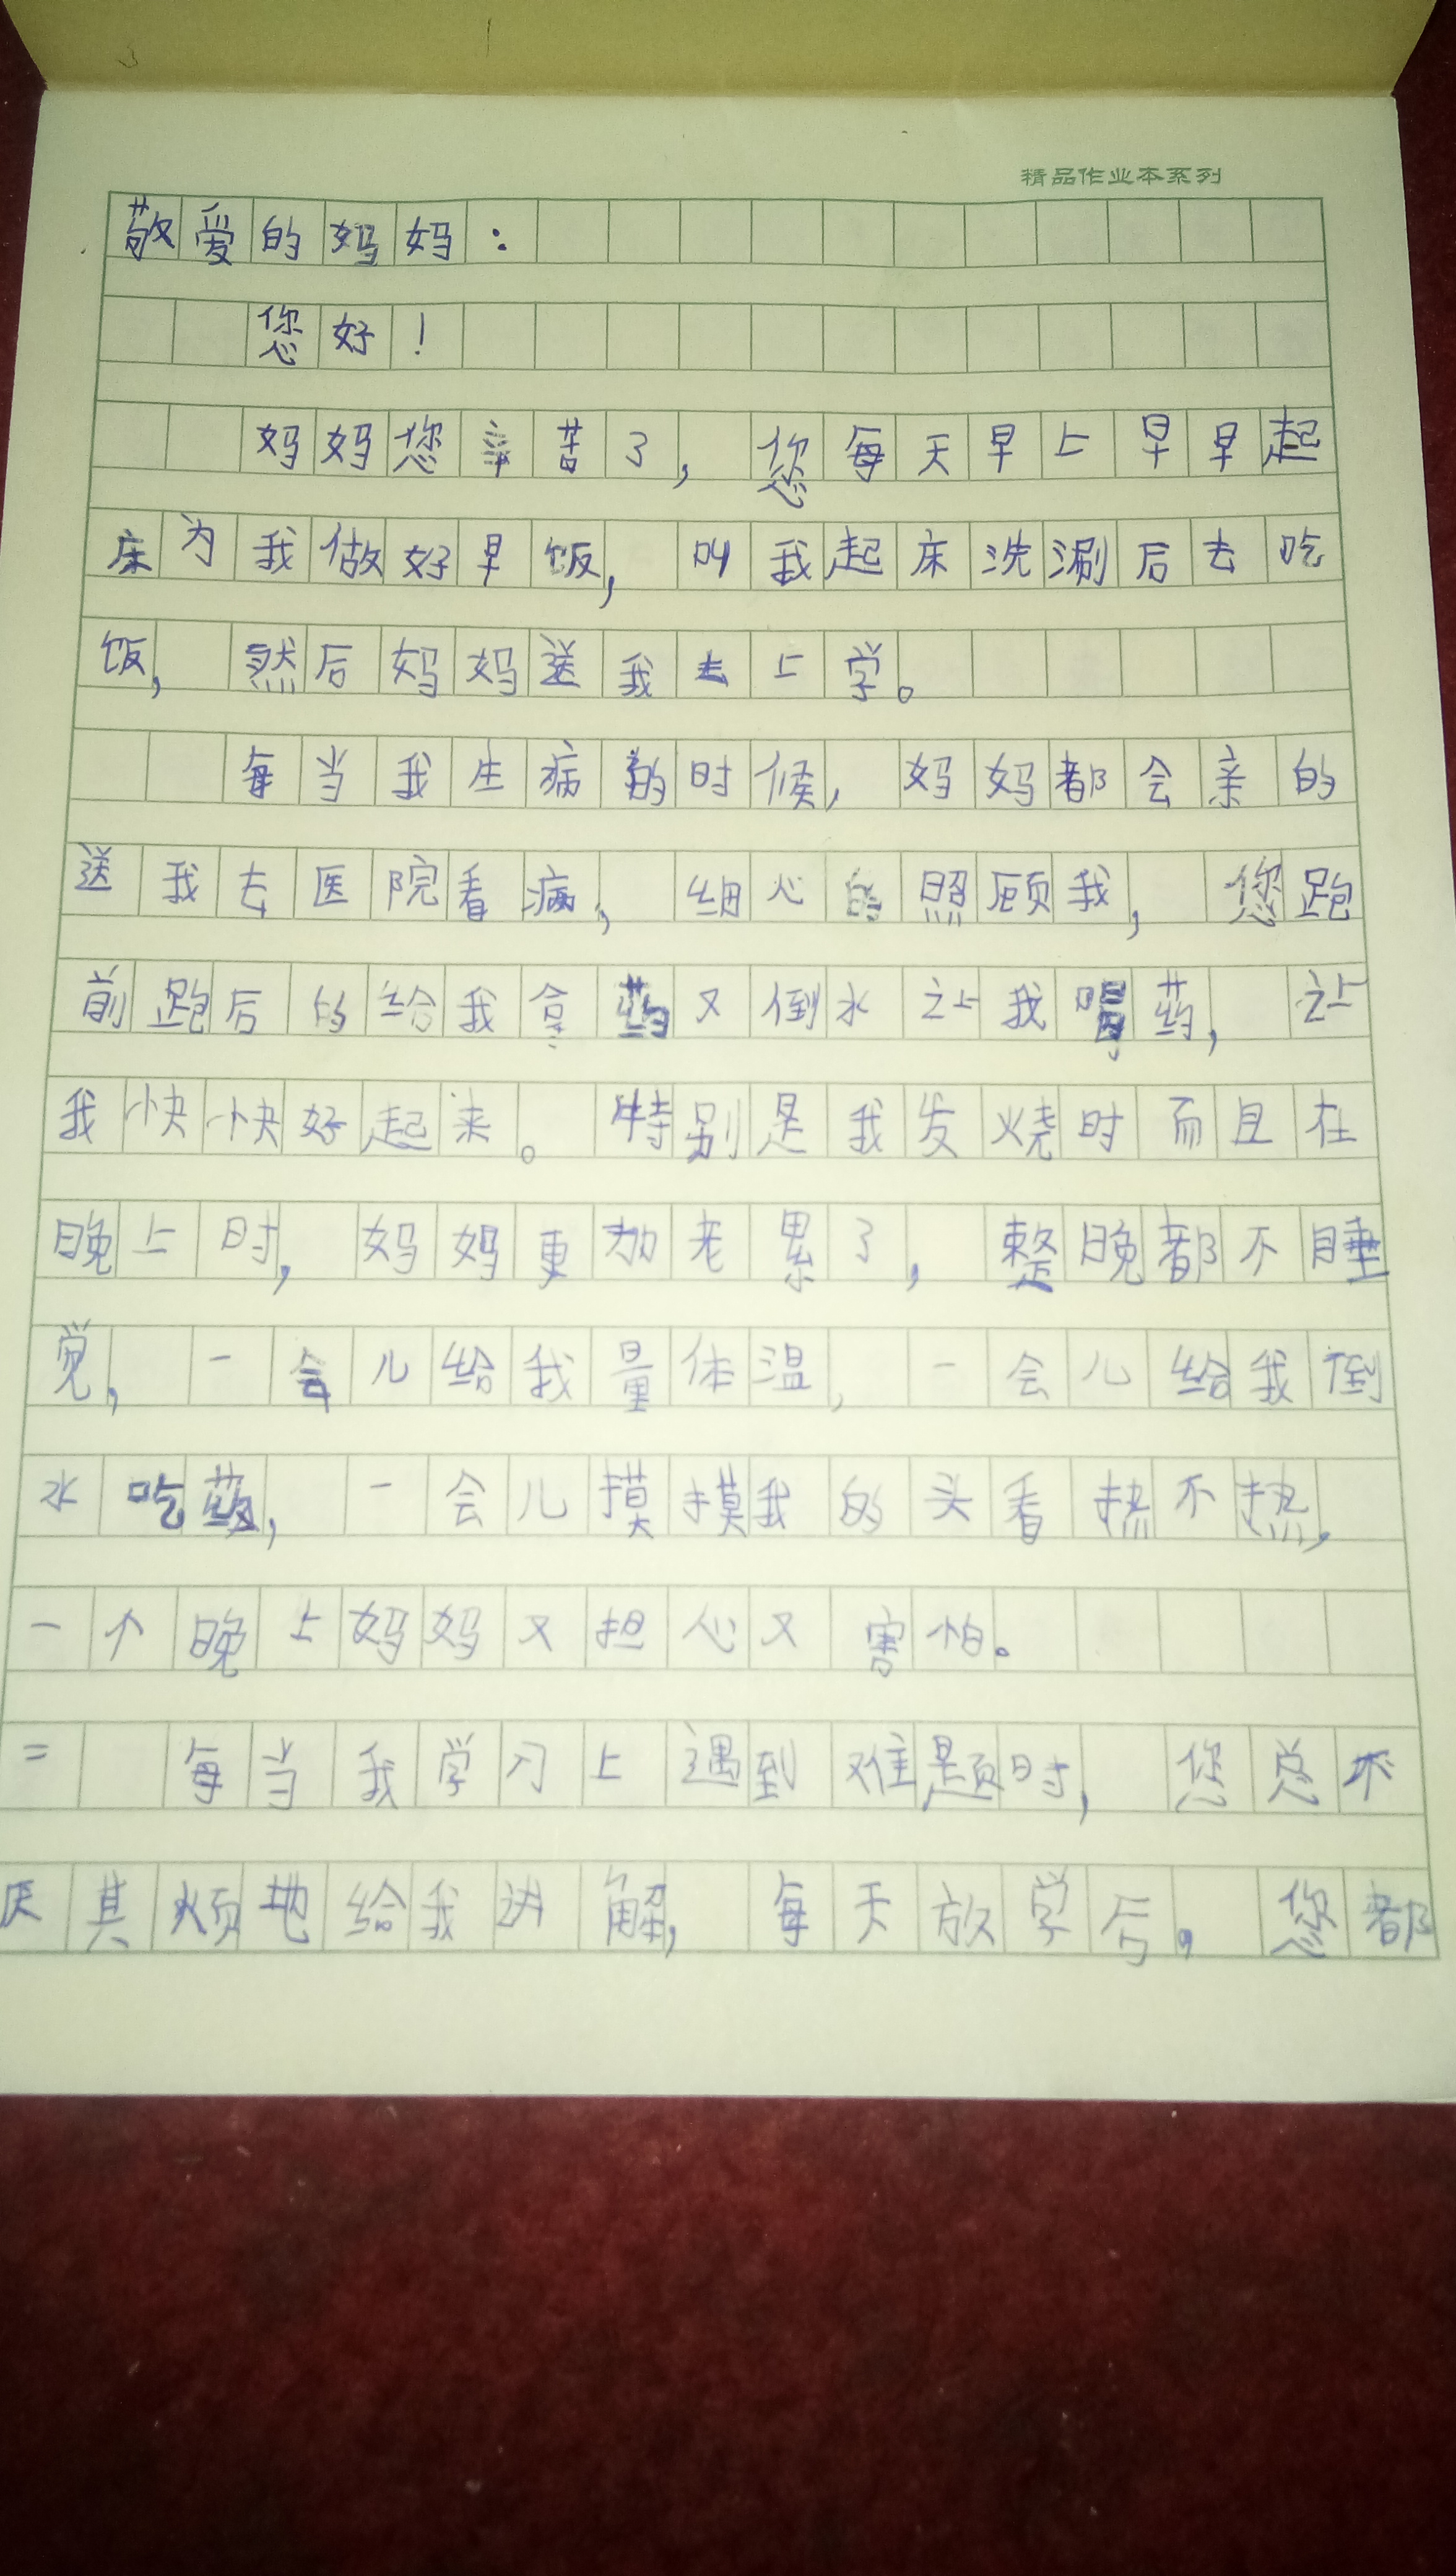 精品作业本系列
敬爱的妈妈：
您好！
妈妈您辛苦了，您每天早上早早起
床为我做好早饭，叫我起床洗涮后去吃
饭，然后妈妈送我去上学。
每当我生病的时候，妈妈都会亲的
送我去医院看病，细心的照顾我，您跑
前跑后的给我拿药又倒水让我喝药，让
我快快好起来。特别是我发烧时而且在
晚上时，妈妈更加老累了，整晚都不睡
觉，一会儿给我量体温，一会儿给我倒
水吃药，一会儿摸摸我的头看热不热，
一个晚上妈妈又担心又害怕。
= 每当我学习上遇到难题时，您总不
厌其烦地给我讲解，每天放学后，您都